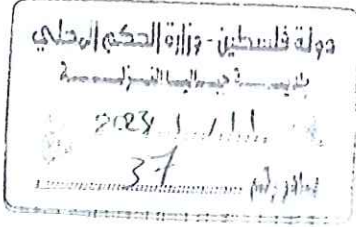 دولة فلسطين - وزارة الحكم المحلي
بلدية جباليا النزلة
2023/1/11
37